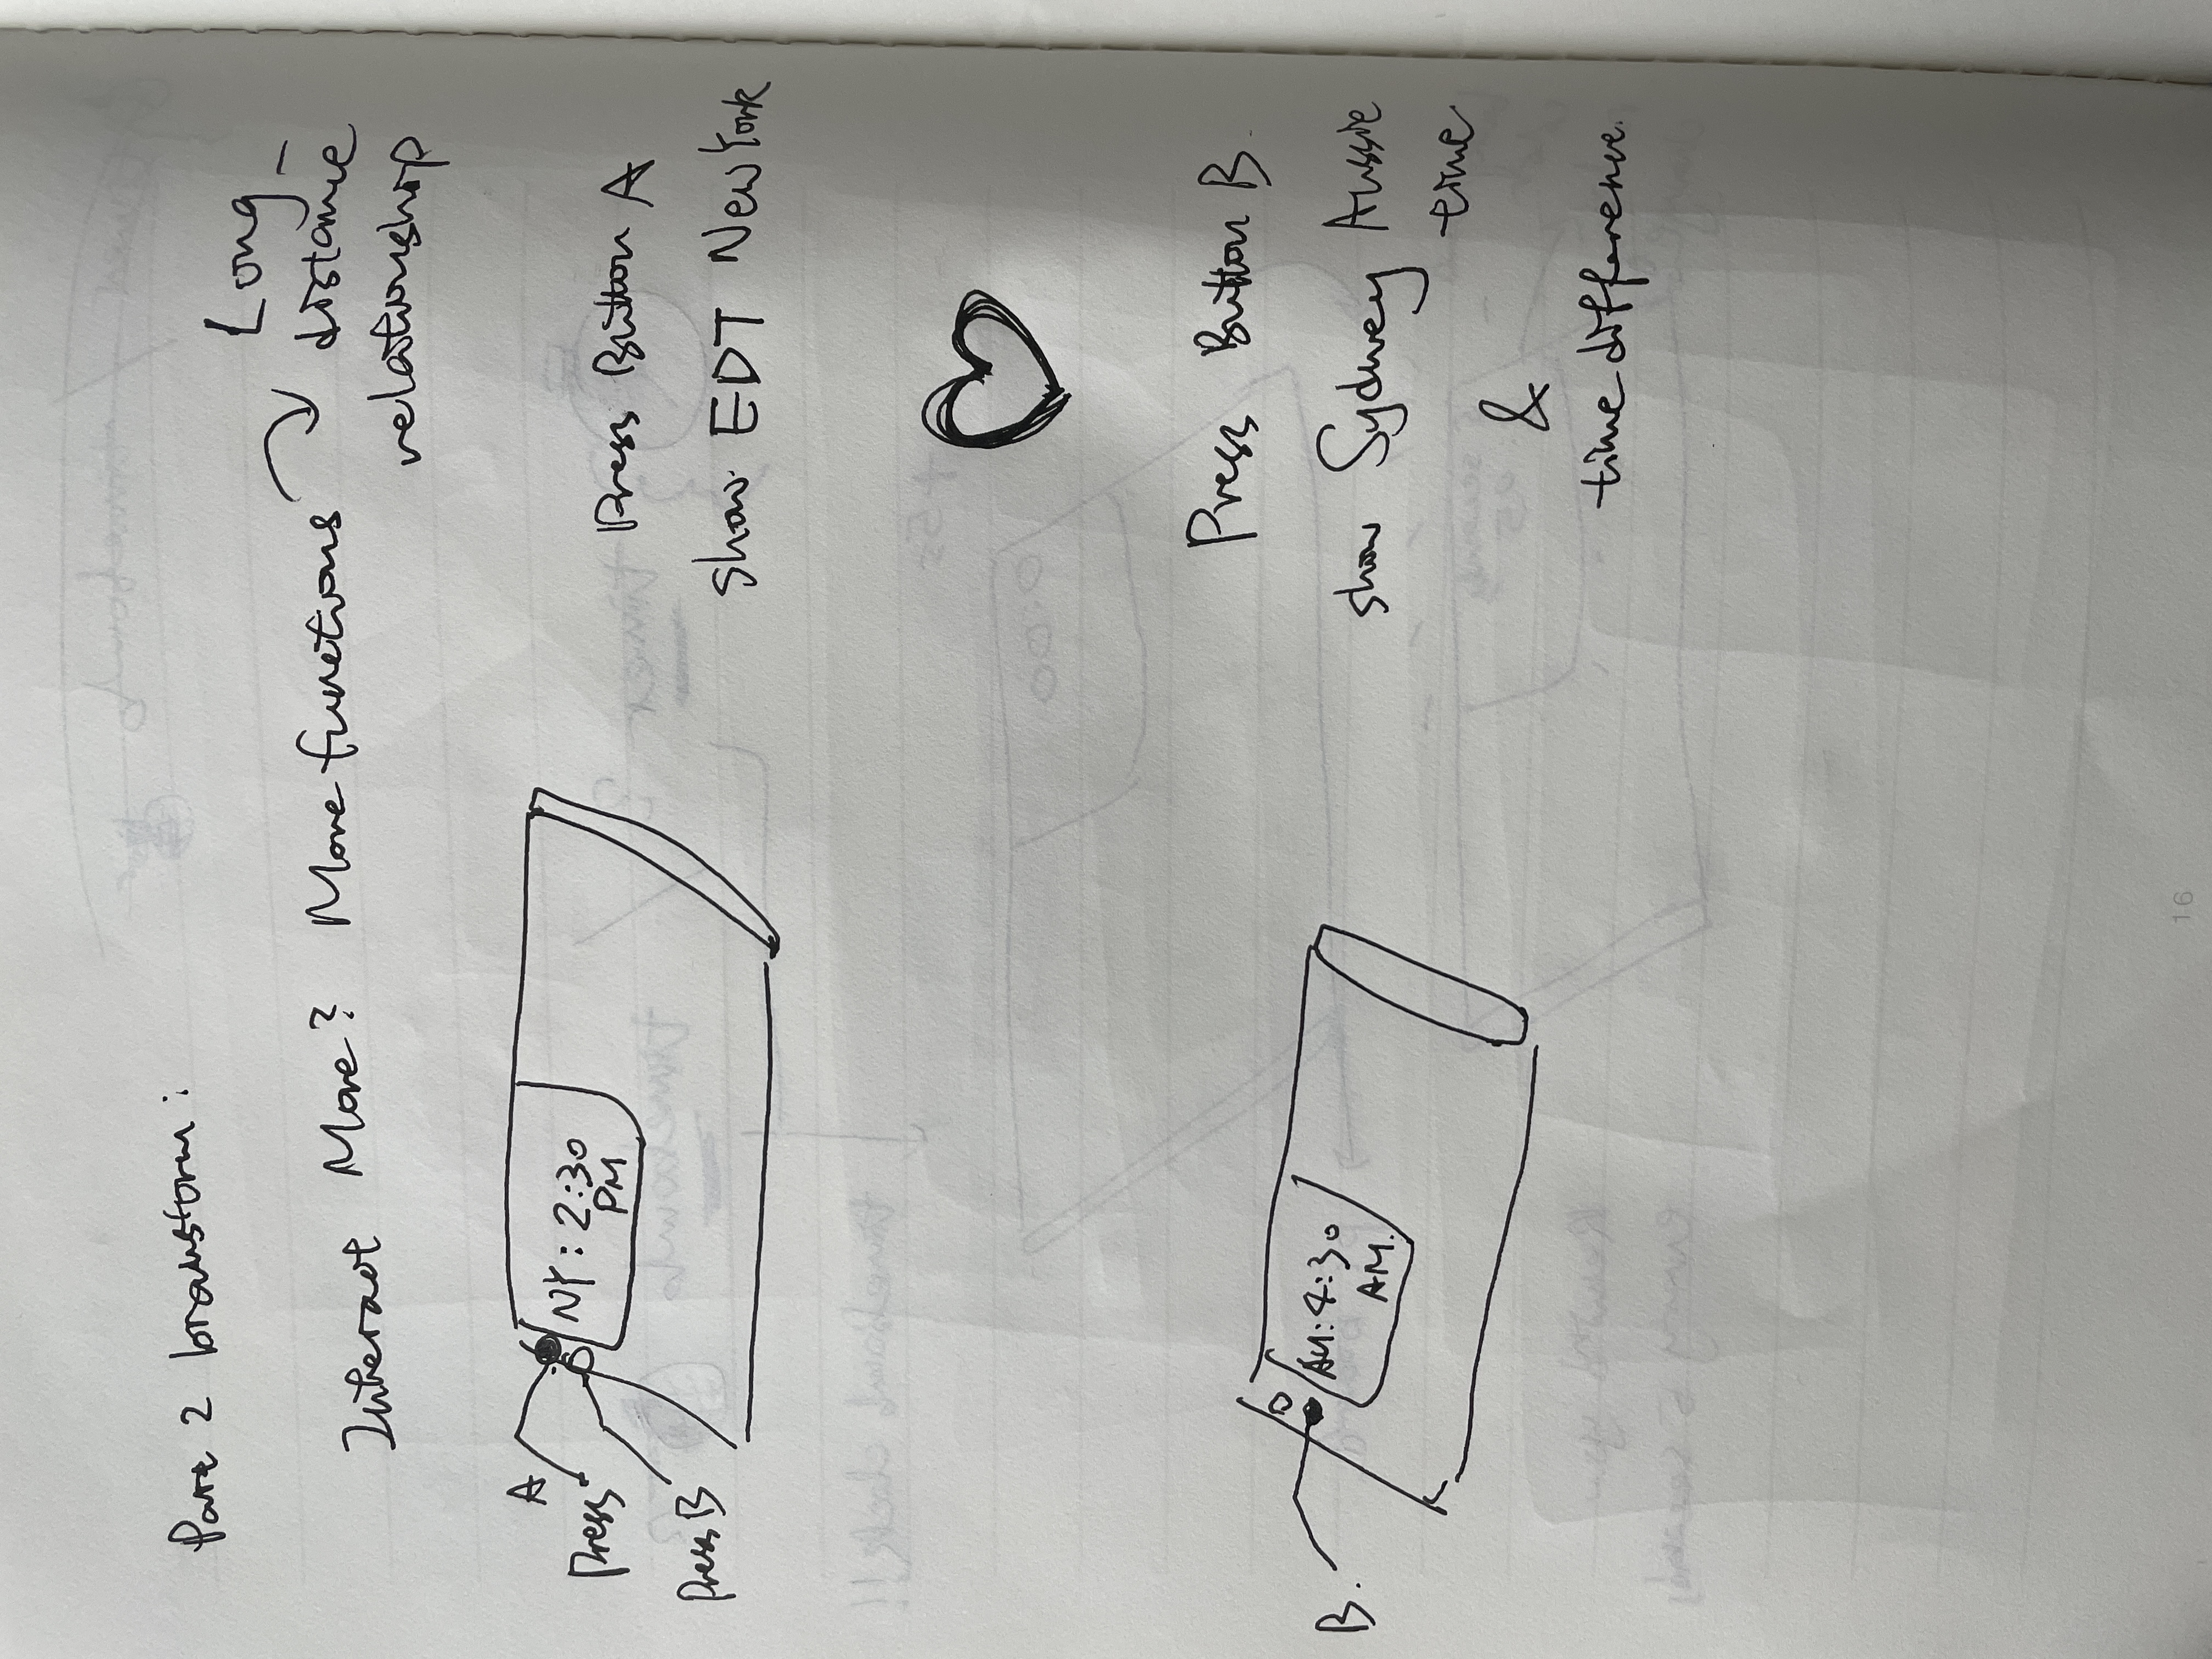 Part 2 brainstorm:
Long-
Interact More? More functions distance
relationship
A
Press
Press B
NY: 2:30
PM
Press Button A
show EDT New York
Press Button B.
B.
AU: 4:30
AM.
show Sydney Aussie
time
&
time difference.
16